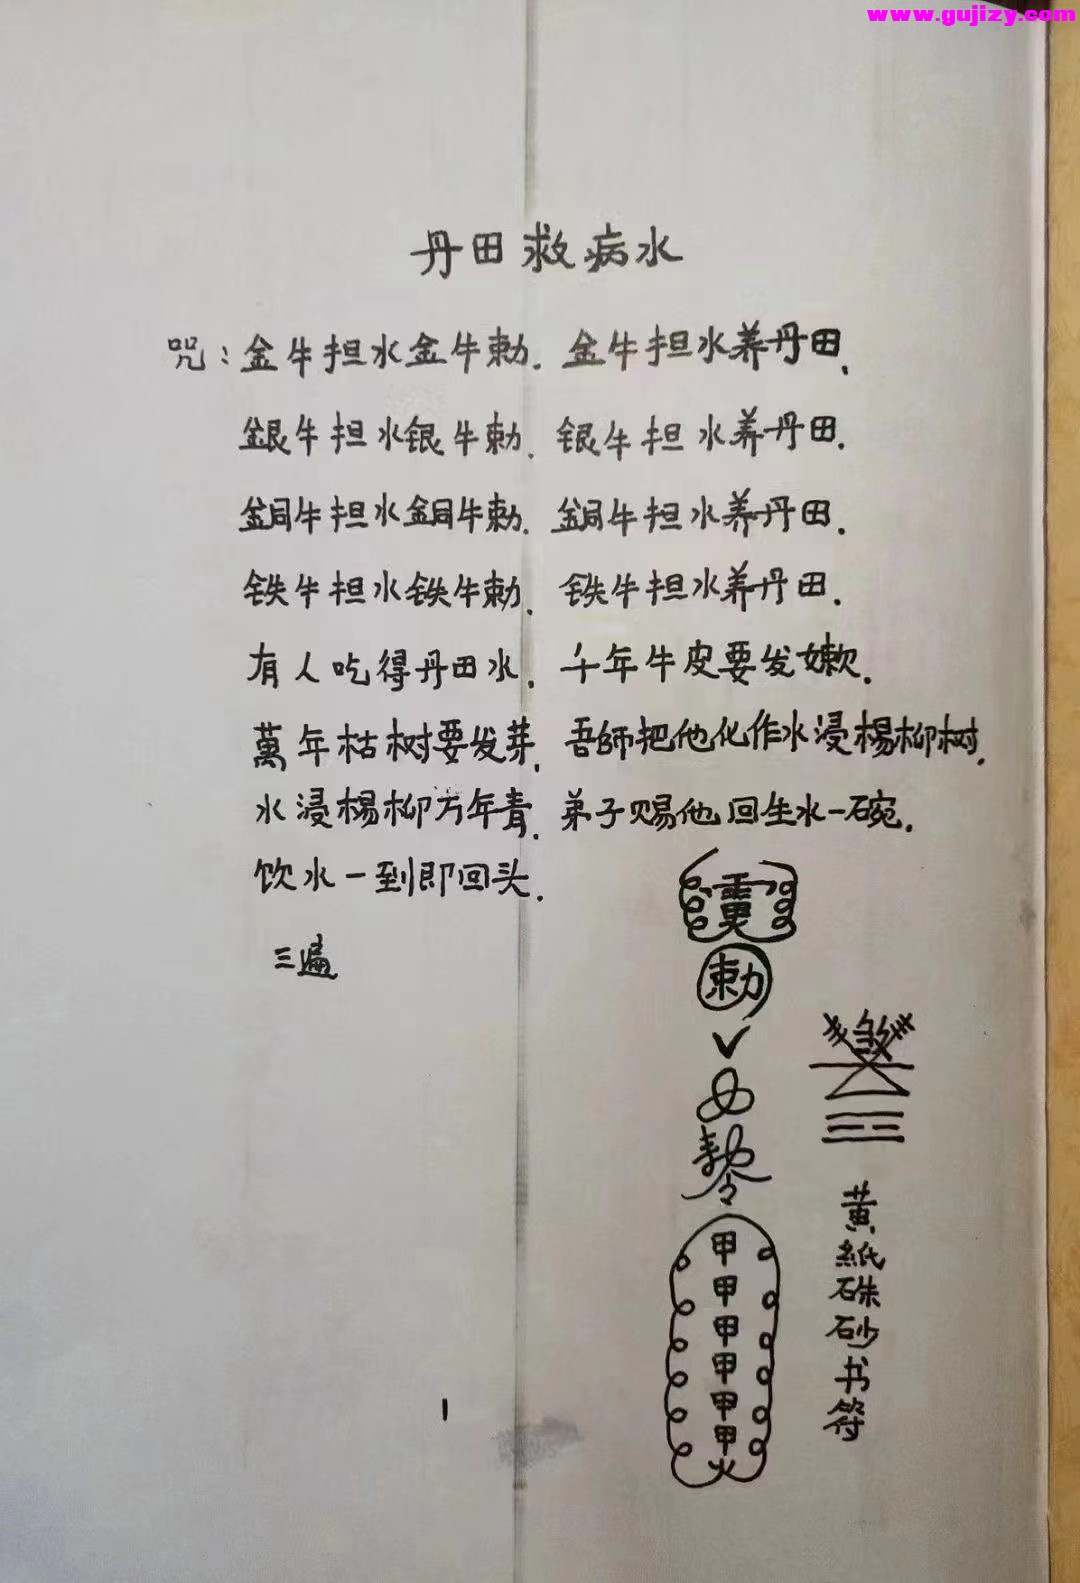 www.gujizy.com
丹田救病水
咒:金牛担水金牛勅.金牛担水养丹田.
銀牛担水银牛勅.银牛担水养丹田.
銅牛担水銅牛勅.銅牛担水养丹田.
铁牛担水铁牛勅.铁牛担水养丹田.
有人吃得丹田水.千年牛皮要发嫩.
萬年枯树要发芽.吾師把他化作水浸楊柳树.
水浸楊柳万年青.弟子赐他回生水一碗.
饮水一到即回头.
三遍
勅
甲
甲
甲
甲
甲
甲
火
煞
黄紙硃砂书符
1